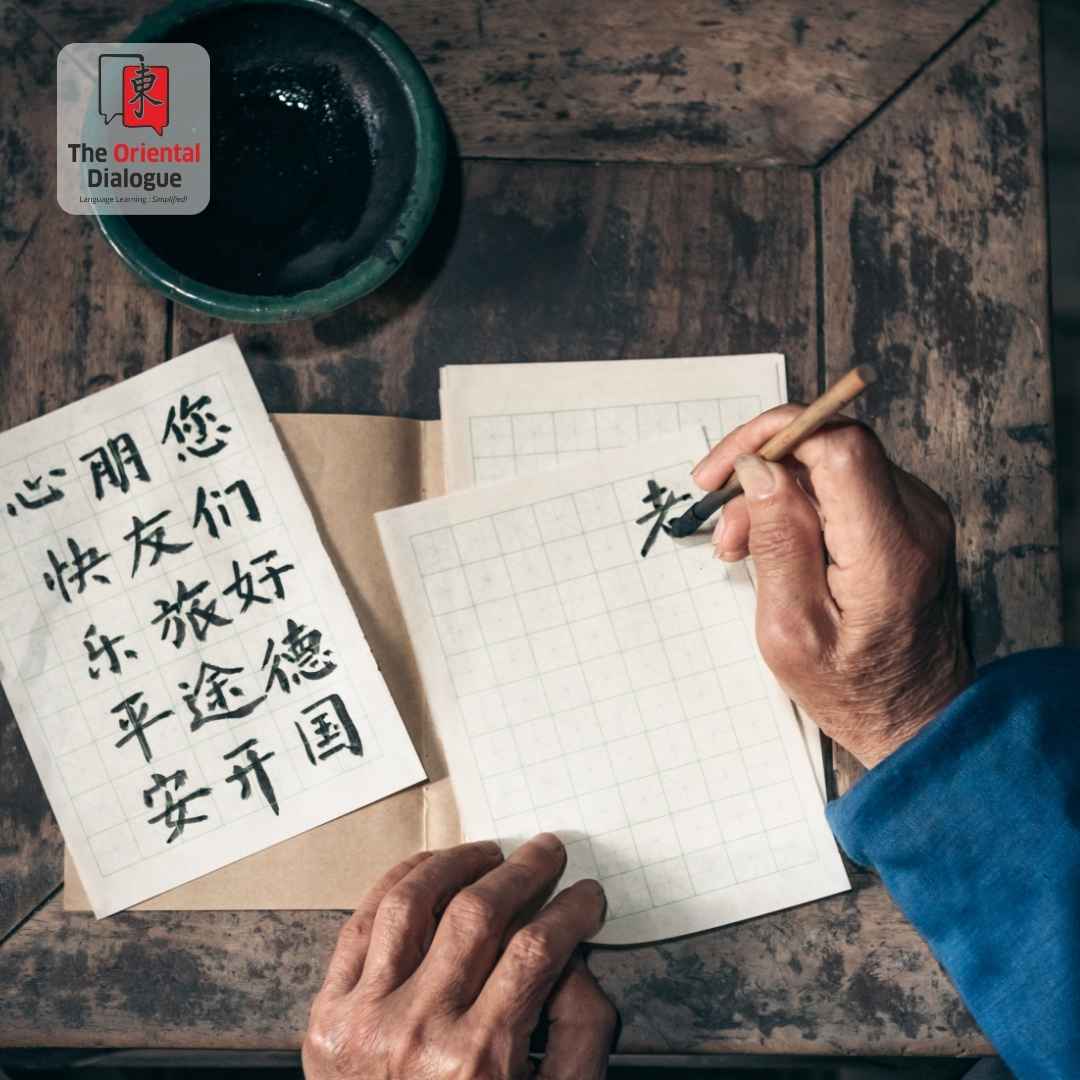 東
The Oriental
Dialogue
Language Learning : Simplified!
您们好德国
朋友旅途开
心快乐平安